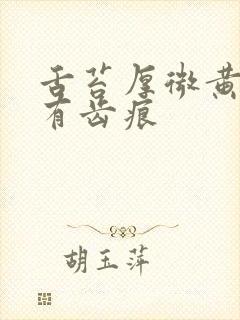 舌苔厚微黄
有齿痕
胡玉萍